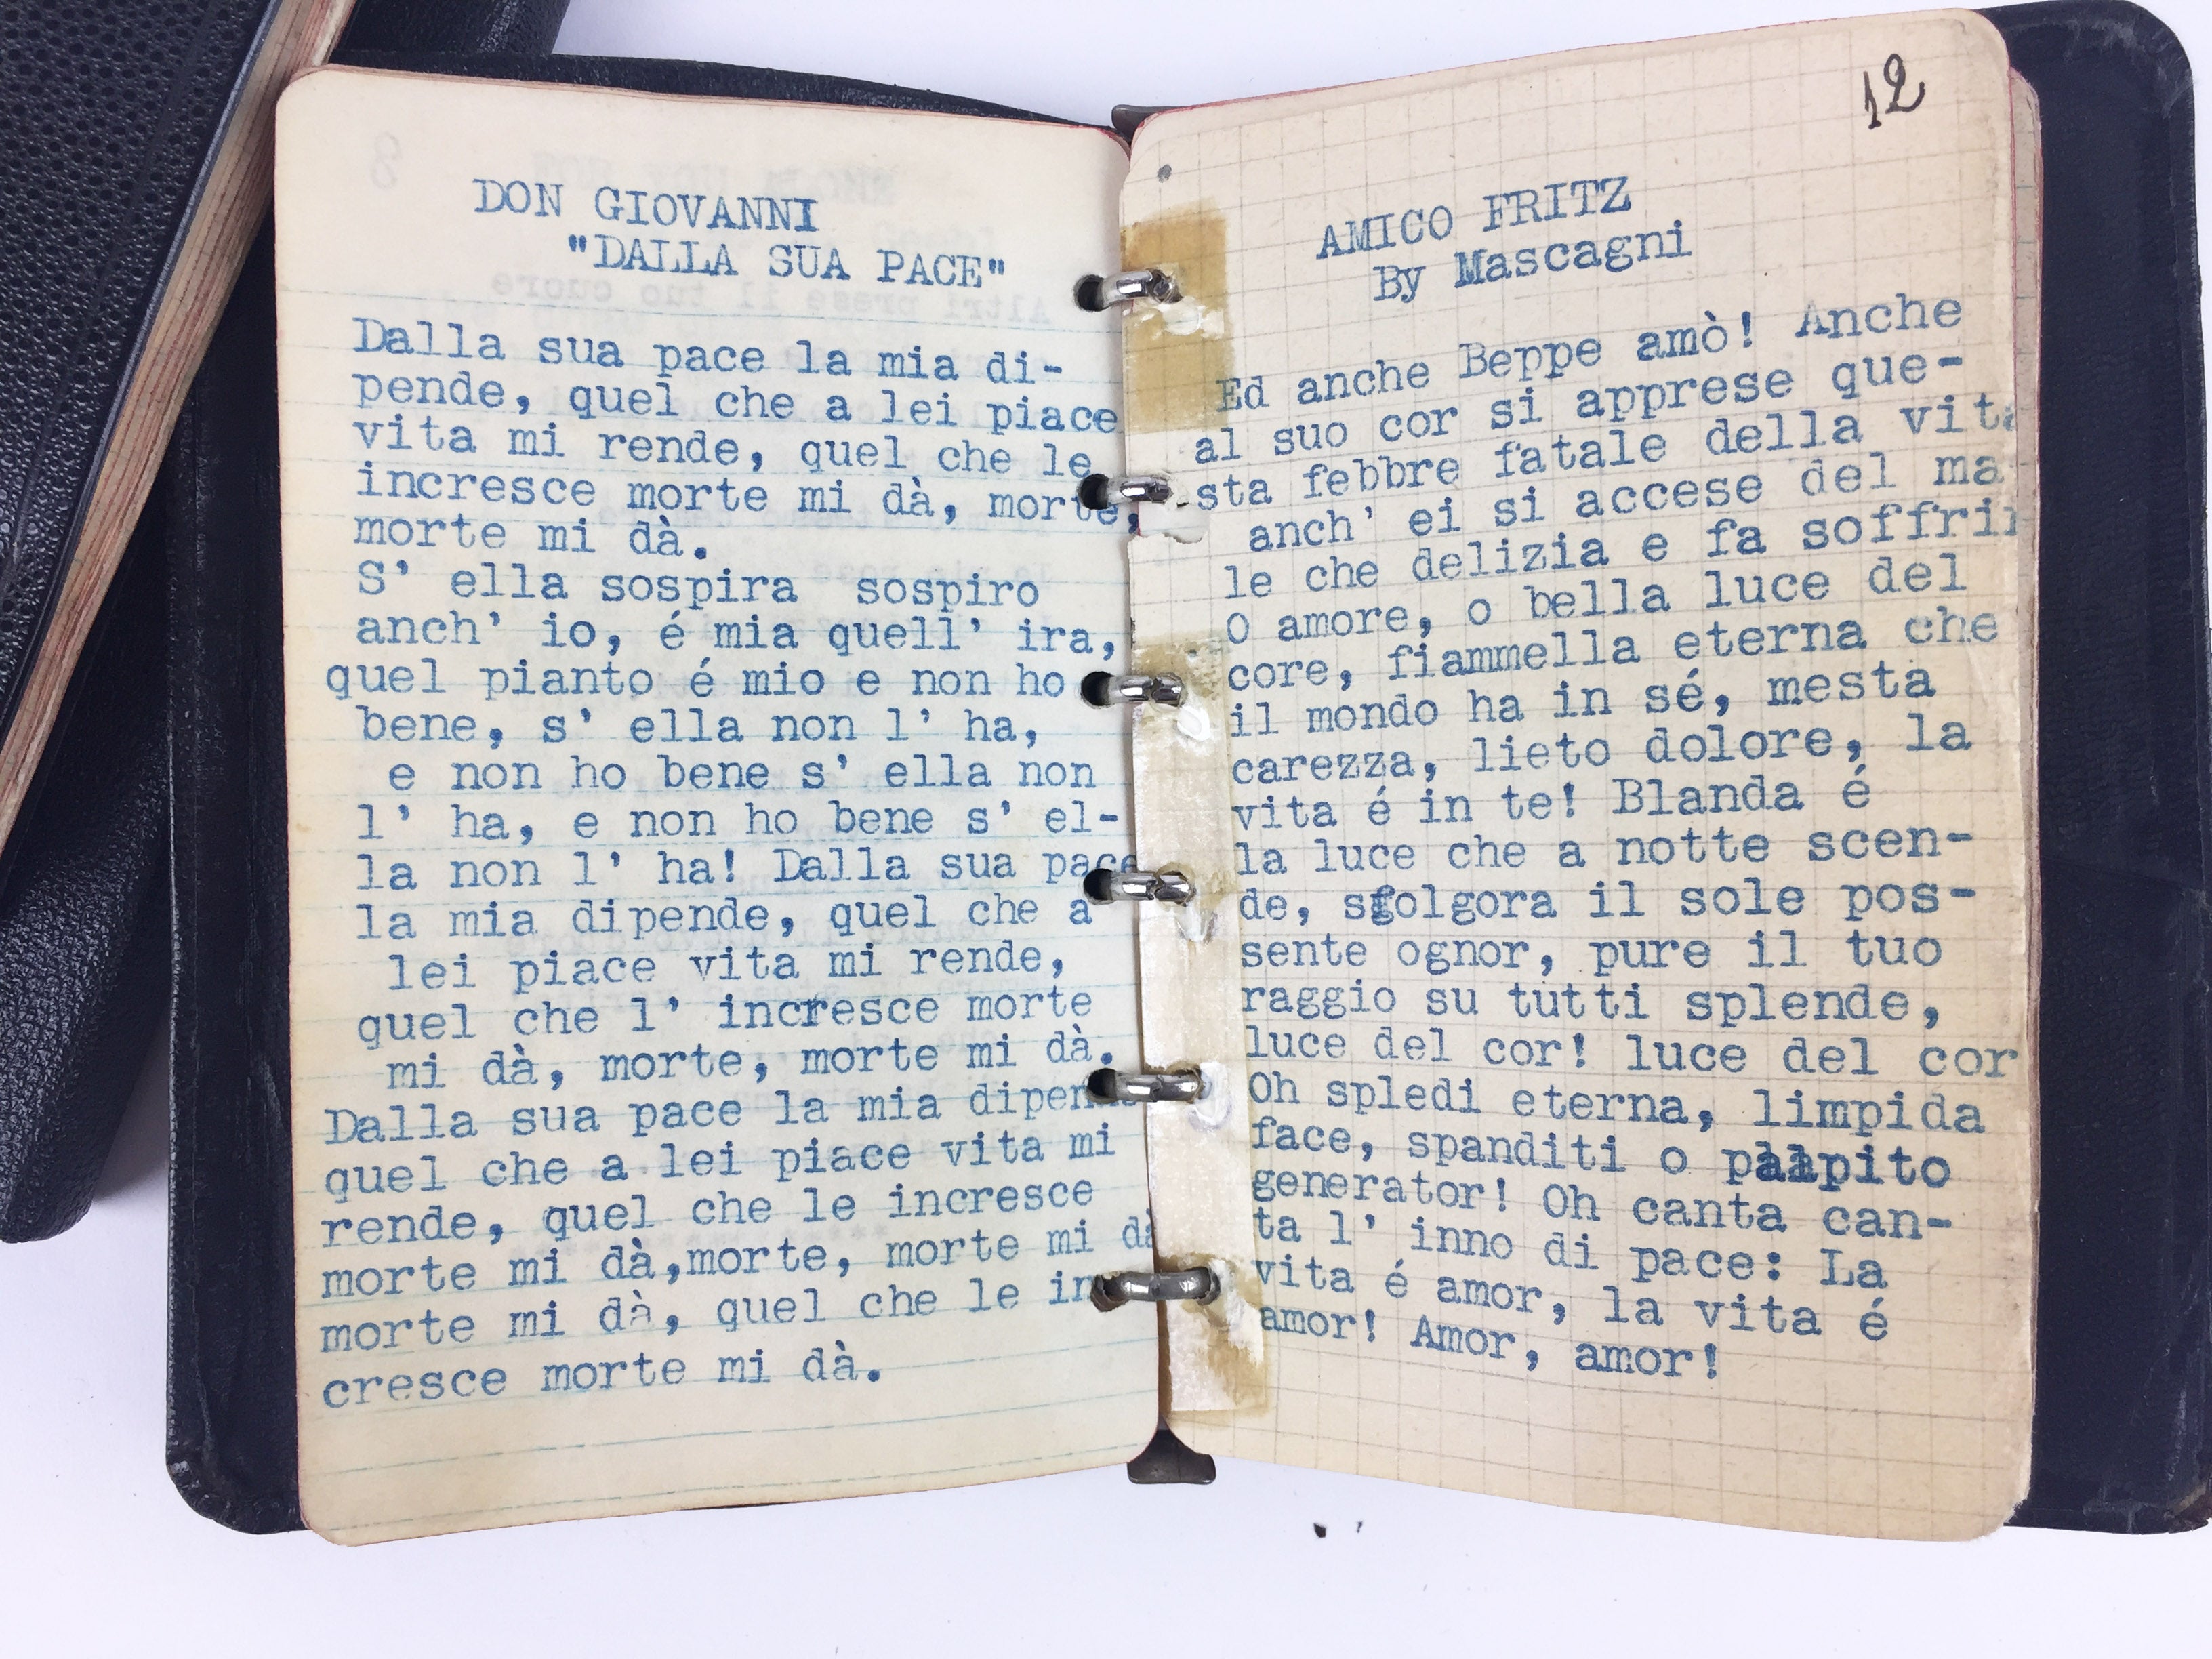 DON GIOVANNI
"DALLA SUA PACE"
Dalla sua pace la mia di-
pende, quel che a lei piace
vita mi rende, quel che le
incresce morte mi dà, morte,
morte mi dà.
S' ella sospira sospiro
anch' io, é mia quell' ira,
quel pianto é mio e non ho
bene, s' ella non l' ha,
e non ho bene s' ella non
l' ha, e non ho bene s' el-
la non l' ha! Dalla sua pace
la mia dipende, quel che a
lei piace vita mi rende,
quel che l' incresce morte
mi dà, morte, morte mi dà.
Dalla sua pace la mia dipen
quel che a lei piace vita mi
rende, quel che le incresce
morte mi dà,morte, morte mi dà
morte mi dà, quel che le in
cresce morte mi dà.
12
AMICO FRITZ
By Mascagni
Ed anche Beppe amò! Anche
al suo cor si apprese que-
sta febbre fatale della vita
anch' ei si accese del ma
le che delizia e fa soffrir
O amore, o bella luce del
core, fiammella eterna che
il mondo ha in sé, mesta
carezza, lieto dolore, la
vita é in te! Blanda é
la luce che a notte scen-
de, sfolgora il sole pos-
sente ognor, pure il tuo
raggio su tutti splende,
luce del cor! luce del cor
Oh spledi eterna, limpida
face, spanditi o palpito
generator! Oh canta can-
ta l' inno di pace: La
vita é amor, la vita é
amor! Amor, amor!